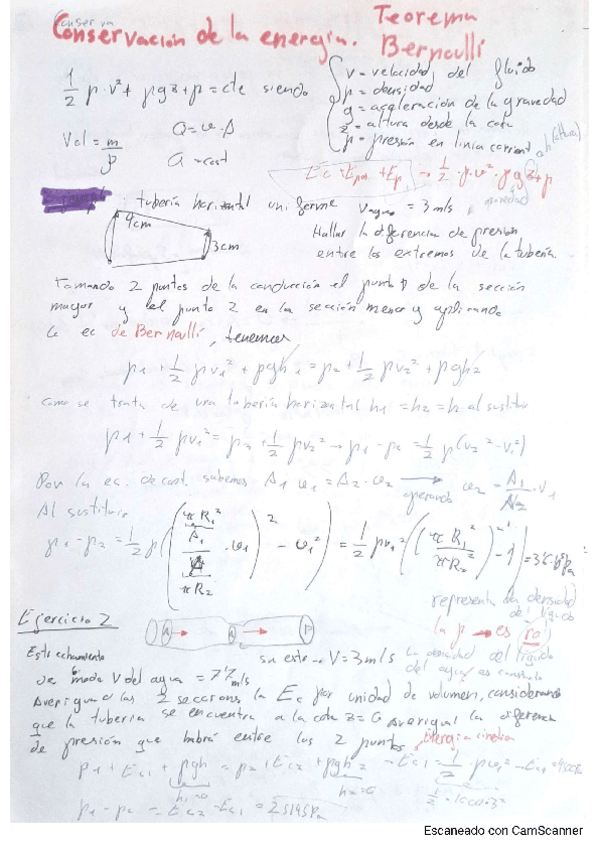 Conservación de la energía. Teorema
Bernoulli
1/2 ρ·v² + ρgz + p = cte siendo
v = velocidad del fluido
ρ = densidad
g = aceleración de la gravedad
z = altura desde la cota
p = presión en linia corrient
Vol = m/ρ
Q = v·A
Q = cost
: tubería horizontal uniforme v agua = 3 m/s
9cm
3cm
Hallar la diferencia de presión
entre los extremos de la tubería
Tomando 2 puntos de la conducción el punto 1 de la sección
mayor y el punto 2 en la sección menor y aplicando
la ec de Bernoulli, tenemos
p1 + 1/2 ρv1² + ρgh1 = p2 + 1/2 ρv2² + ρgh2
Como se trata de una tubería horizontal h1 = h2 = h al sustituir
p1 + 1/2 ρv1² = p2 + 1/2 ρv2² → p1 - p2 = 1/2 ρ(v2² - v1²)
Por la ec. de cont. sabemos A1 v1 = A2 · v2 → operando v2 = A1/A2 · v1
Al sustituir
p1 - p2 = 1/2 ρ((πR1²/πR2² · v1)² - v1²) = 1/2 ρv1²((πR1²/πR2²)² - 1)
representa la densidad
del líquido
la ρ → es ro
La densidad del líquido
del agua es constante
Ejercicio 2
Este echamiento
su extr V = 3 m/s
de modo V del agua = 7'7 m/s
averigua las 2 secciones la Ec por unidad de volumen, considerando
que la tubería se encuentra a la cota z=0 averigua la diferencia
de presión que habrá entre los 2 puntos. Energía cinética
p1 + Ec1 + ρgh = p2 + Ec2 + ρgh2 → Ec1 = 1/2 · ρv1²
h1=0
h2=0
p1 - p2 = Ec2 - Ec1 = 25145Pa
Escaneado con CamScanner